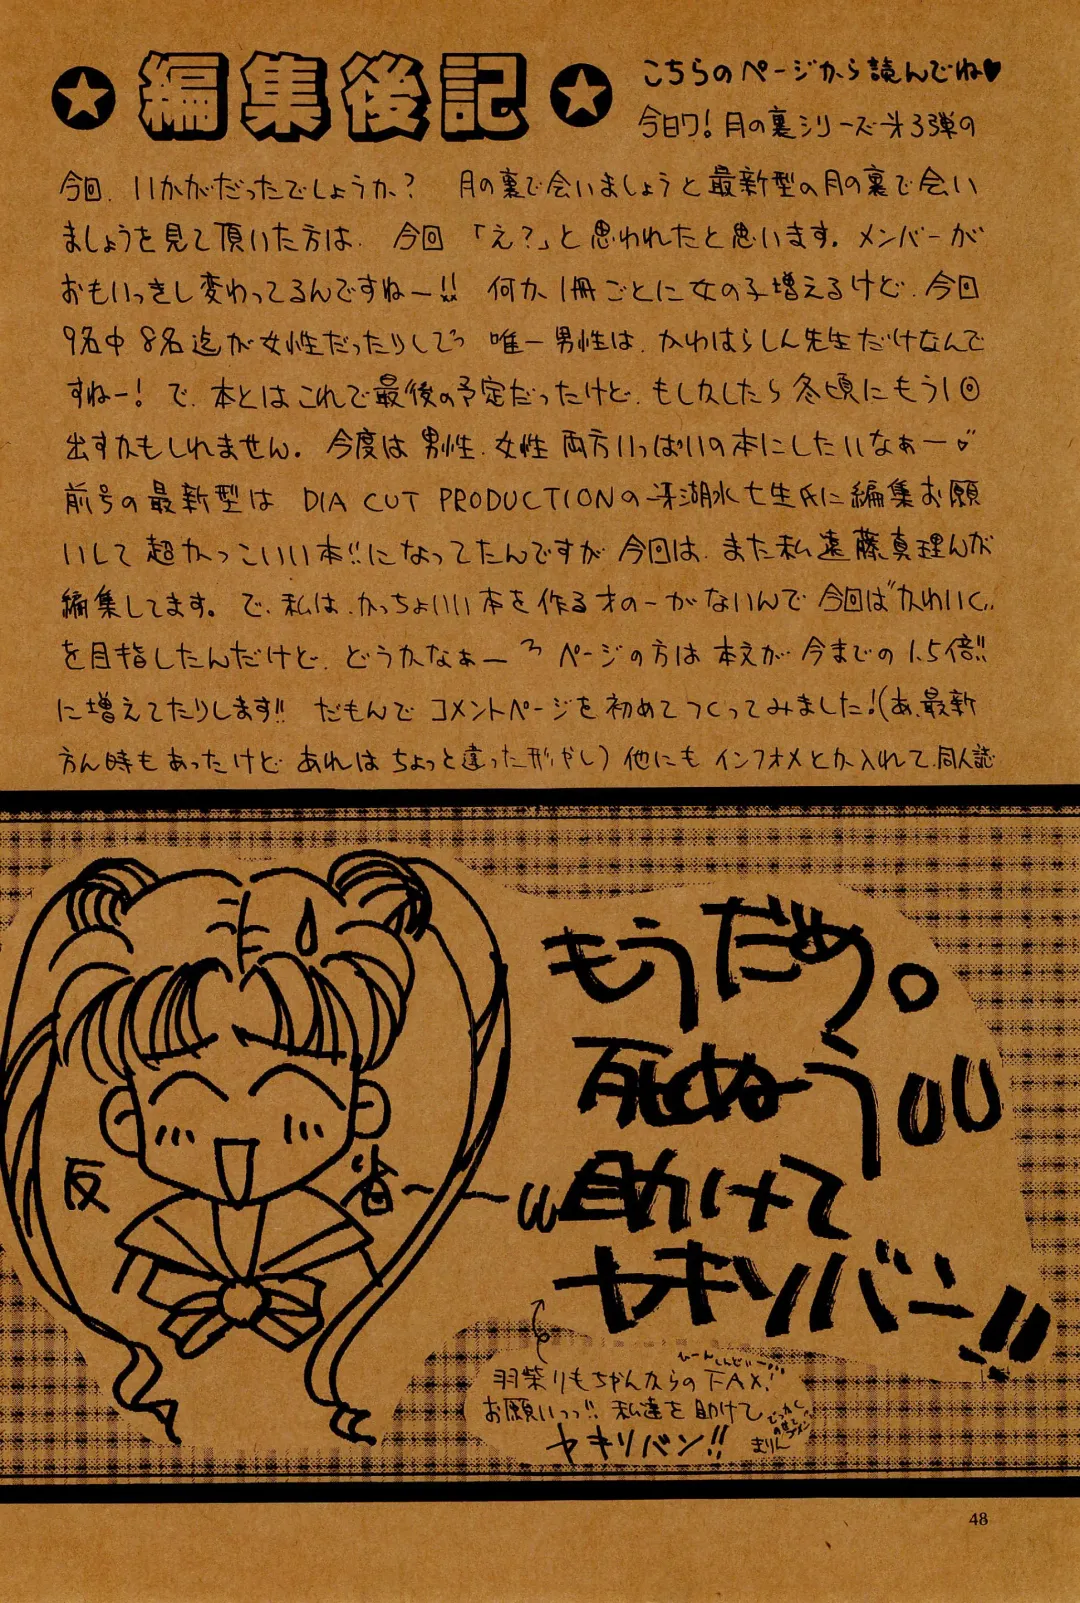 ★編集後記★
こちらのページから読んでね♥
今日ワ!月の裏シリーズ第3弾の
今回、いかがだったでしょうか? 月の裏で会いましょうと最新型の月の裏で会い
ましょうを見て頂いた方は、今回「え?」と思われたと思います。メンバーが
おもいっきし変わってるんですねー!! 何か、1冊ごとに女の子増えるけど、今回
9名中8名迄が女性だったりしてっ 唯一男性は、かわはらしん先生だけなんで
すねー! で、本とはこれで最後の予定だったけど、もしかしたら冬頃にもう1回
出すかもしれません。今度は男性、女性両方いっぱいの本にしたいなぁー♡
前号の最新型は DIA CUT PRODUCTIONの冴湖水七生氏に編集お願
いして超かっこいい本!!になってたんですが今回は、また私遠藤真理んが
編集してます。で、私は、かっちょいい本を作る才のーがないんで今回は"かわいく"
を目指したんだけど、どうかなぁー ページの方は本文が今までの1.5倍!!
に増えてたりします!! だもんでコメントページを初めてつくってみました!(あ、最新
方ん時もあったけどあれはちょっと違った形やし)他にもインフォメとか入れて、同人誌
もうだめ。
死ぬう
助けて
ヤキソバン!!
反省〜〜
ひーんしんどいー
羽柴りもちゃんからのFAX!
お願いっっ!! 私達を助けて
ヤキソバン!!
まりん
48